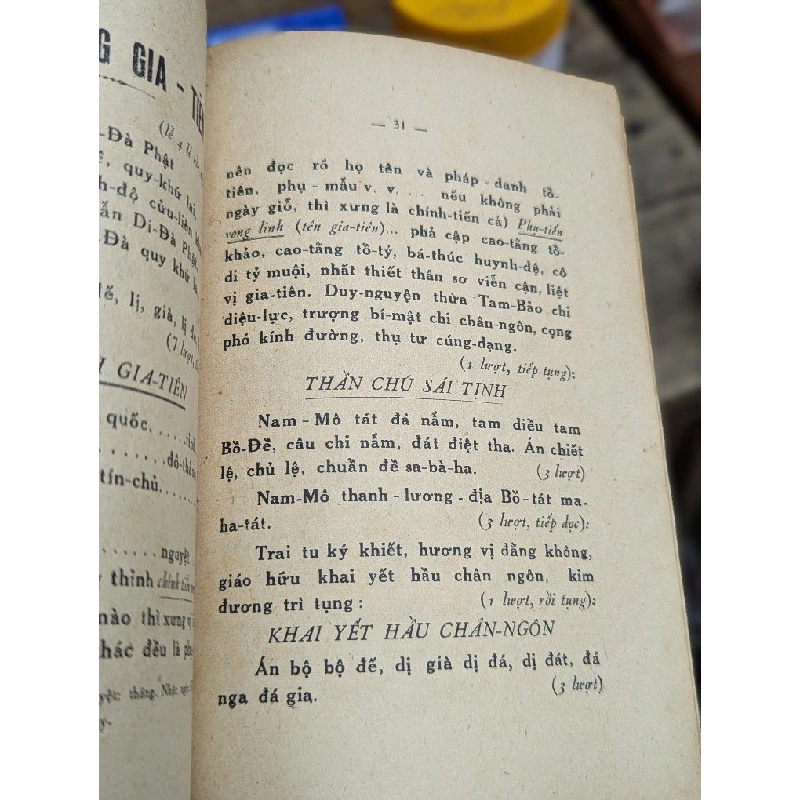 G GIA - TIÊ
(lễ 4 lễ
-Đà Phật
, quy-khứ lai,
h-độ cửu-liên
ẫn Di-Đà Phật
Đà quy khứ
ế, lị, già, lị
(7 lượt,
GIA-TIÊN
quốc......
........đô-thành
tín-chủ.......
.......nguyệt
thỉnh chính tiến
nào thì xưng vị
hác đều là
tháng. Nhật
— 31 —
nên đọc rõ họ tên và pháp-danh tổ-
tiên, phụ-mẫu v. v. . . . nếu không phải
ngày giỗ, thì xưng là chính-tiến cả) Phụ-tiến
vong linh (tên gia-tiên)... phả cập cao-tằng tổ-
khảo, cao-tằng tổ-tỷ, bá-thúc huynh-đệ, cô
di tỷ muội, nhất thiết thân sơ viễn cận, liệt
vị gia-tiên. Duy-nguyện thừa Tam-Bảo chi
diệu-lực, trượng bí-mật chi chân-ngôn, cọng
phó kính đường, thụ tư cúng-dạng.
(1 lượt, tiếp tụng):
THẦN CHÚ SÁI TỊNH
Nam-Mô tát đá nẫm, tam diểu tam
Bồ-Đề, câu chi nẫm, đát điệt tha. Án chiết
lệ, chủ lệ, chuẩn đề sa-bà-ha. (3 lượt)
Nam-Mô thanh-lương-địa Bồ-tát ma.
ha-tát. (3 lượt, tiếp đọc):
Trai tu ký khiết, hương vị đằng không,
giáo hữu khai yết hầu chân ngôn, kim
đương trì tụng: (1 lượt, rồi tụng):
KHAI YẾT HẦU CHÂN-NGÔN
Án bộ bộ đế, dị già dị đá, dị đát, đá
nga đá gia. (3 lượt)